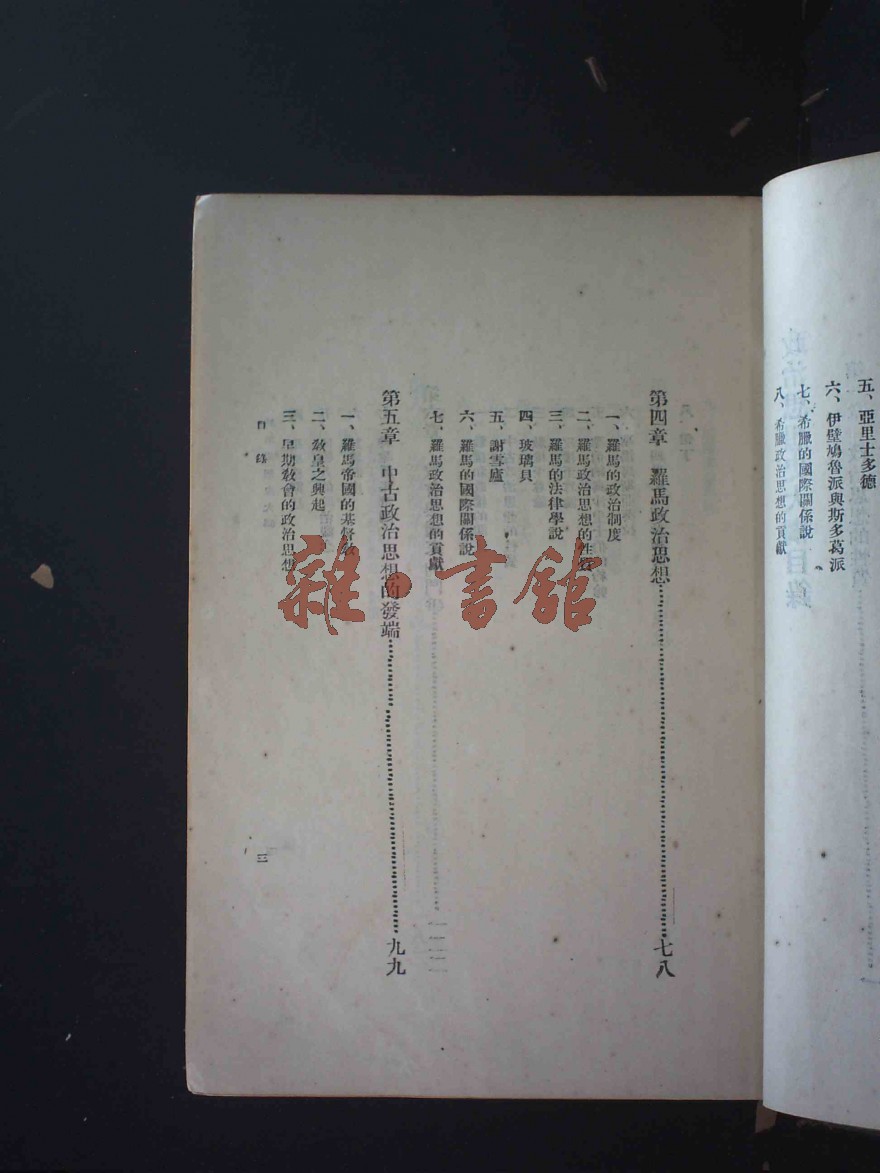 五、亞里士多德
六、伊壁鳩魯派與斯多葛派
七、希臘的國際關係說
八、希臘政治思想的貢獻
第四章 羅馬政治思想……七八
一、羅馬的政治制度
二、羅馬政治思想的性質
三、羅馬的法律學說
四、玻璃貝
五、謝雪廬
六、羅馬的國際關係說
七、羅馬政治思想的貢獻
第五章 中古政治思想的發端……九九
一、羅馬帝國的基督教
二、教皇之興起
三、早期教會的政治思想
目錄
三
雜·書館